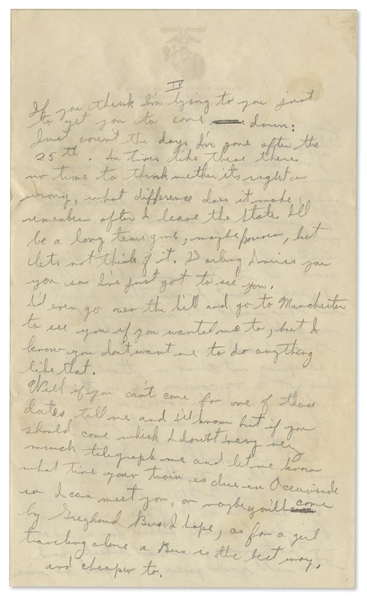 IV
If you think I'm lying to you just
to get you to come down:
Just count the days I'm gone after the
25th. In times like these theres
no time to think wether its right or
wrong, what difference does it make
remember after I leave the States I'll
be a long time gone, maybe forever, but
lets not think of it. Darling I miss you
you son I've just got to see you.
I'd even go over the hill and go to Manchester
to see you if you wanted me to, but I
know you don't want me to do anything
like that.
Well if you can't come for one of those
dates tell me and I'll know but if you
should come which I doubt very very
much telegraph me and let me know
what time your train is due in Oceanside
so I can meet you, or maybe you'll come
by Greyhound Bus I hope, as for a girl
traveling alone a Bus is the best way,
and cheaper to.